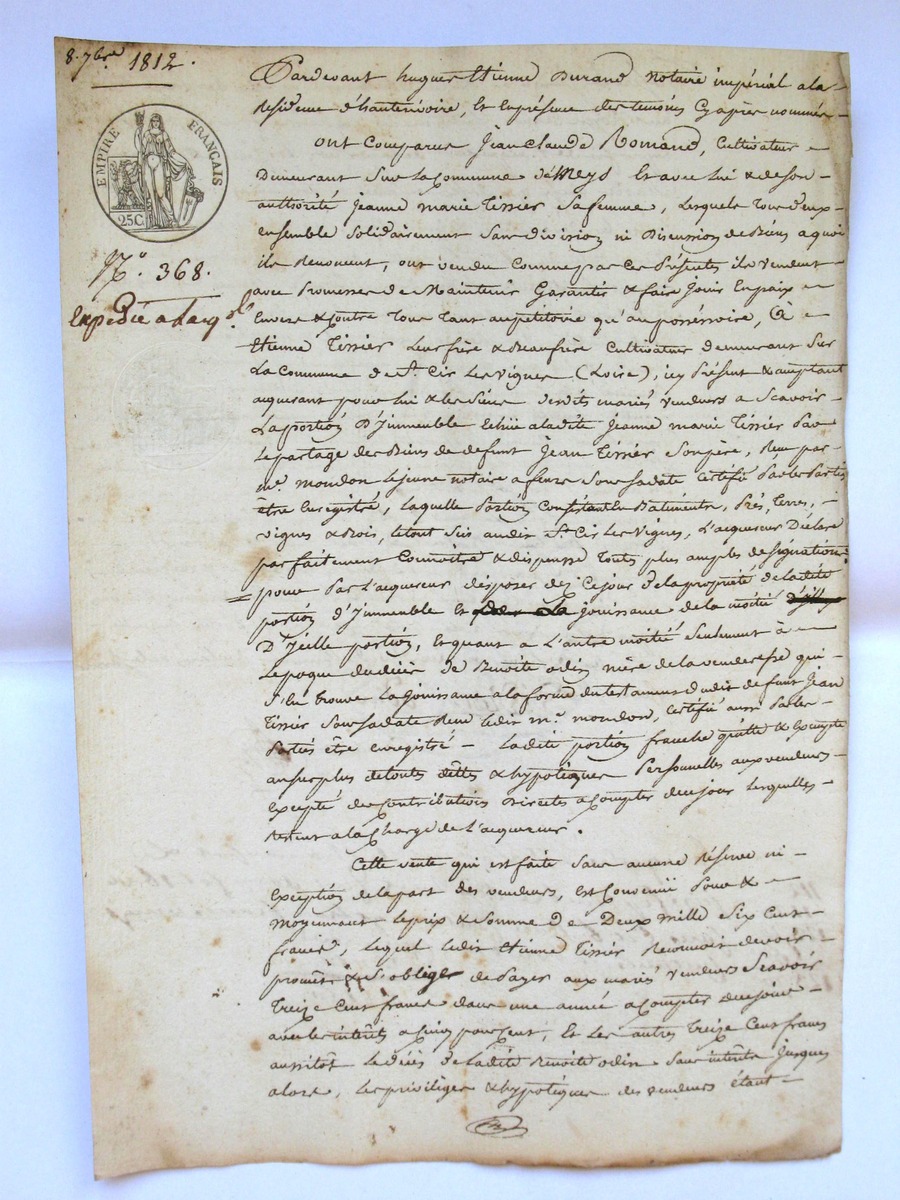 8. 7bre 1812.
EMPIRE FRANÇAIS
25C.
N.° 368.
Expédié a l'acq.r
Pardevant hugues Etienne Durand Notaire impérial a la
Residence d'hauterivoire, Et en présence des temoins Cy après nommés
ont Comparus Jean Claude Romand, Cultivateur
Demeurant Sur la Commune de Meys Et avec lui & de son
authorité Jeanne marie Tissier Sa femme, Lesquels tous deux
ensemble Solidairement Sans division ni Discussion de Biens a quoi
ils Renoncent, ont vendu Comme par Ces Présentes ils vendent
avec Promesses de Maintenir Garantir & faire Jouir En paix
Envers & Contre tous tant au petitoire qu'au possessoire, à
Etienne Tissier Leur frère & Beaufrère Cultivateur demeurant Sur
La Commune de St. Cir Les Vignes (Loire), icy Présent & acceptant
acquerant pour lui & les Siens desdits mariés vendeurs a Scavoir
La portion D'Jmmeuble Echüe a ladite Jeanne marie Tissier Par
Le partage des Biens de defunt Jean Tissier Son père, Reçu par
me. mondon Le jeune notaire a feurs Sous Sa date Certifié Par les Parties
être Enregistré, Laquelle Portion Consistant En Batiments, Prés, terres,
vignes & Bois, le tout Sis audit St. Cir Les Vignes, L'acquereur Déclare
parfaitement Connoitre & dispense toute plus ample designation
pour Par L'acquereur disposer dès Ce jour de la propriété de ladite
portion d'Jmmeuble Et jouissance de la moitié
D'Jcelle portion, Et quant a L'autre moitié Seulement à
L'epoque du décès de Benoite odin mère de la venderesse qui
S'En trouve La Jouissance a la forme du testament dudit defunt Jean
Tissier Sous Sa date Reçu Ledit me. mondon, Certifié aussi Par les
Parties être enregistré – Ladite portion franche quitte & Exempte
au surplus de toutes dettes & hypotèques Personnelles aux vendeurs
Excepté des Contributions Directes a Compter de ce jour Lesquelles
Restent a la Charge de L'acquereur.
Cette vente qui est faite Sans aucune Réserve ni
Exception de la part des vendeurs, est Convenüe Pour &
Moyennant Le prix & Somme De Deux mille Six Cent
francs, Lequel Ledit Etienne Tissier Reconnoit devoir
promet & S'obliger de Payer aux mariés vendeurs Scavoir
Treize Cent francs dans une année a Compter de ce jour
avec les intérêts a Cinq pour Cent, Et Les autres Treize Cent francs
aussitôt Le décès de ladite Benoite odin Sans intérêts Jusques
alors, Les privilèges & hypotèques des vendeurs étant